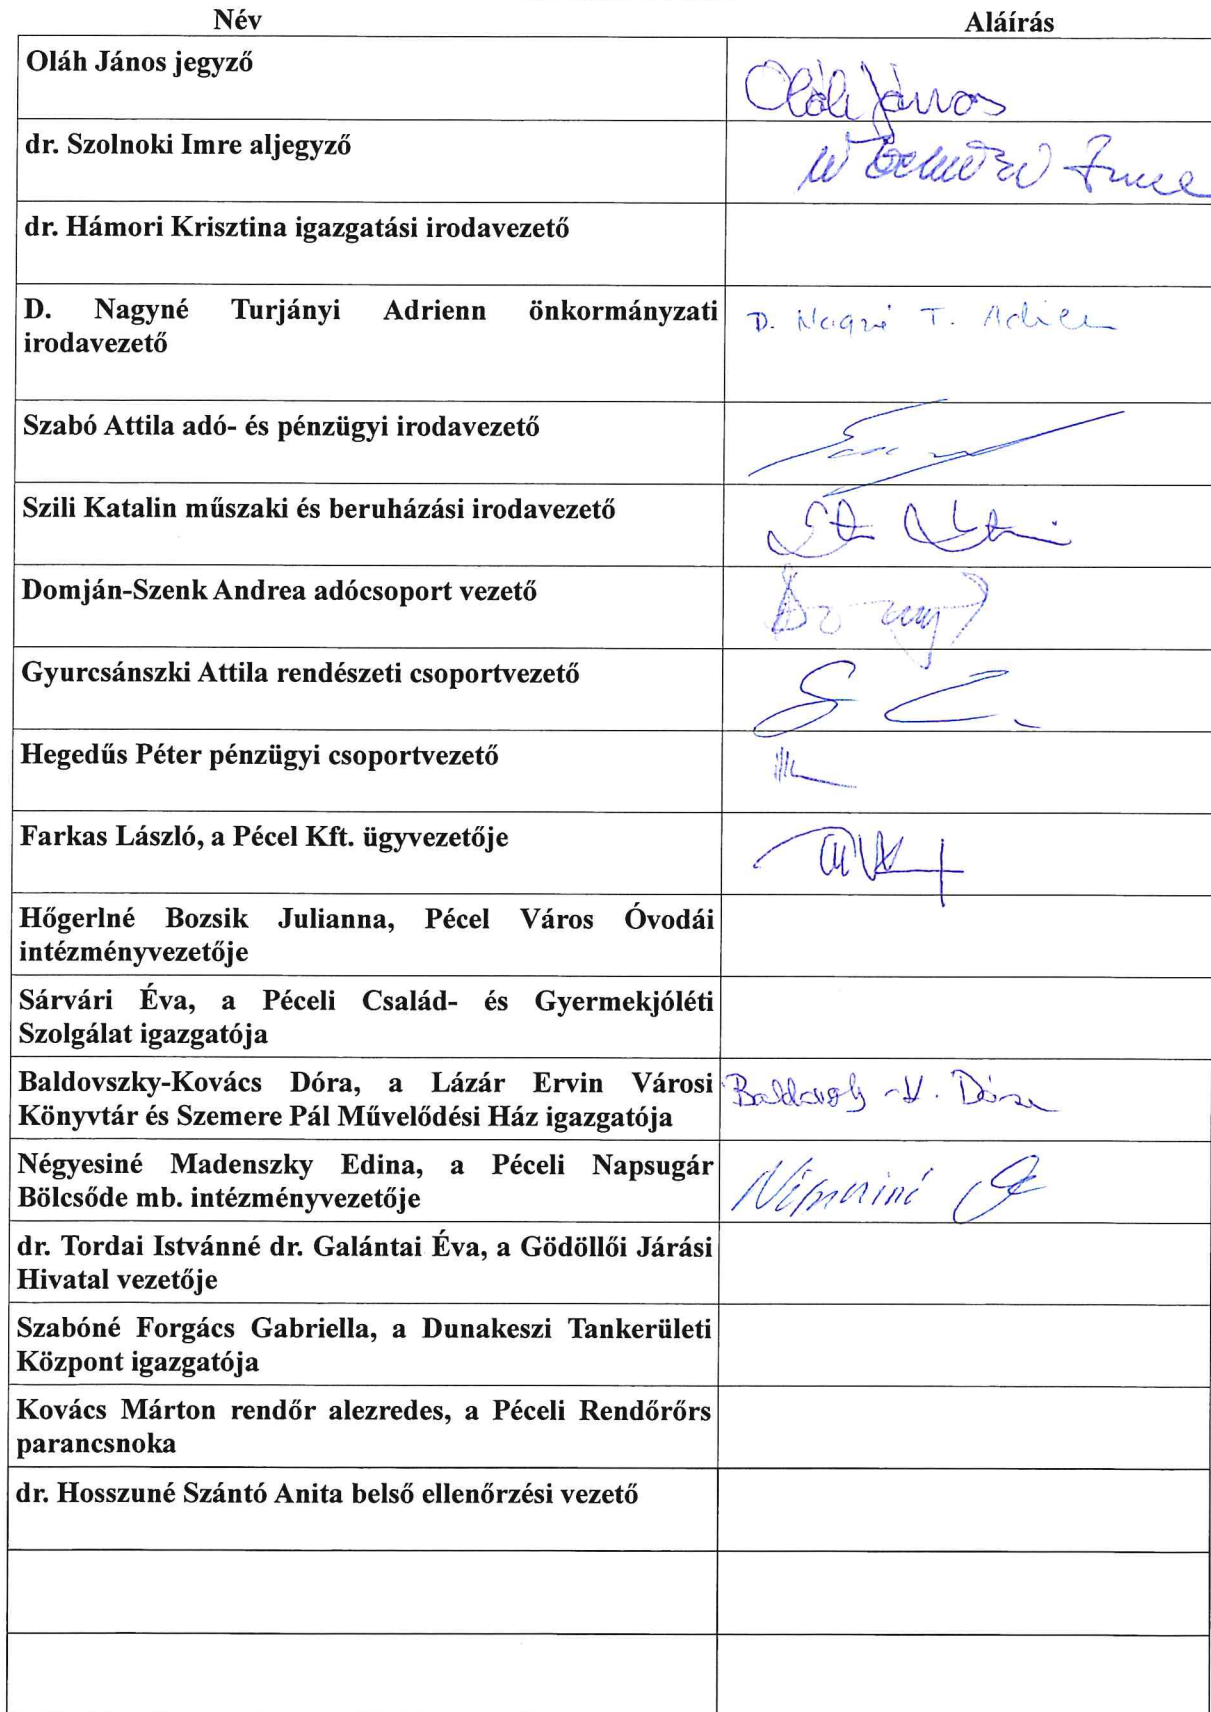 Név Aláírás
Oláh János jegyző
Oláh János
dr. Szolnoki Imre aljegyző
Imre
dr. Hámori Krisztina igazgatási irodavezető
D. Nagyné Turjányi Adrienn önkormányzati
irodavezető
D. Nagyné T. Adrienn
Szabó Attila adó- és pénzügyi irodavezető
Szili Katalin műszaki és beruházási irodavezető
Domján-Szenk Andrea adócsoport vezető
Gyurcsánszki Attila rendészeti csoportvezető
Hegedűs Péter pénzügyi csoportvezető
Farkas László, a Pécel Kft. ügyvezetője
Hőgerlné Bozsik Julianna, Pécel Város Óvodái
intézményvezetője
Sárvári Éva, a Péceli Család- és Gyermekjóléti
Szolgálat igazgatója
Baldovszky-Kovács Dóra, a Lázár Ervin Városi
Könyvtár és Szemere Pál Művelődési Ház igazgatója
Négyesiné Madenszky Edina, a Péceli Napsugár
Bölcsőde mb. intézményvezetője
dr. Tordai Istvánné dr. Galántai Éva, a Gödöllői Járási
Hivatal vezetője
Szabóné Forgács Gabriella, a Dunakeszi Tankerületi
Központ igazgatója
Kovács Márton rendőr alezredes, a Péceli Rendőrőrs
parancsnoka
dr. Hosszuné Szántó Anita belső ellenőrzési vezető